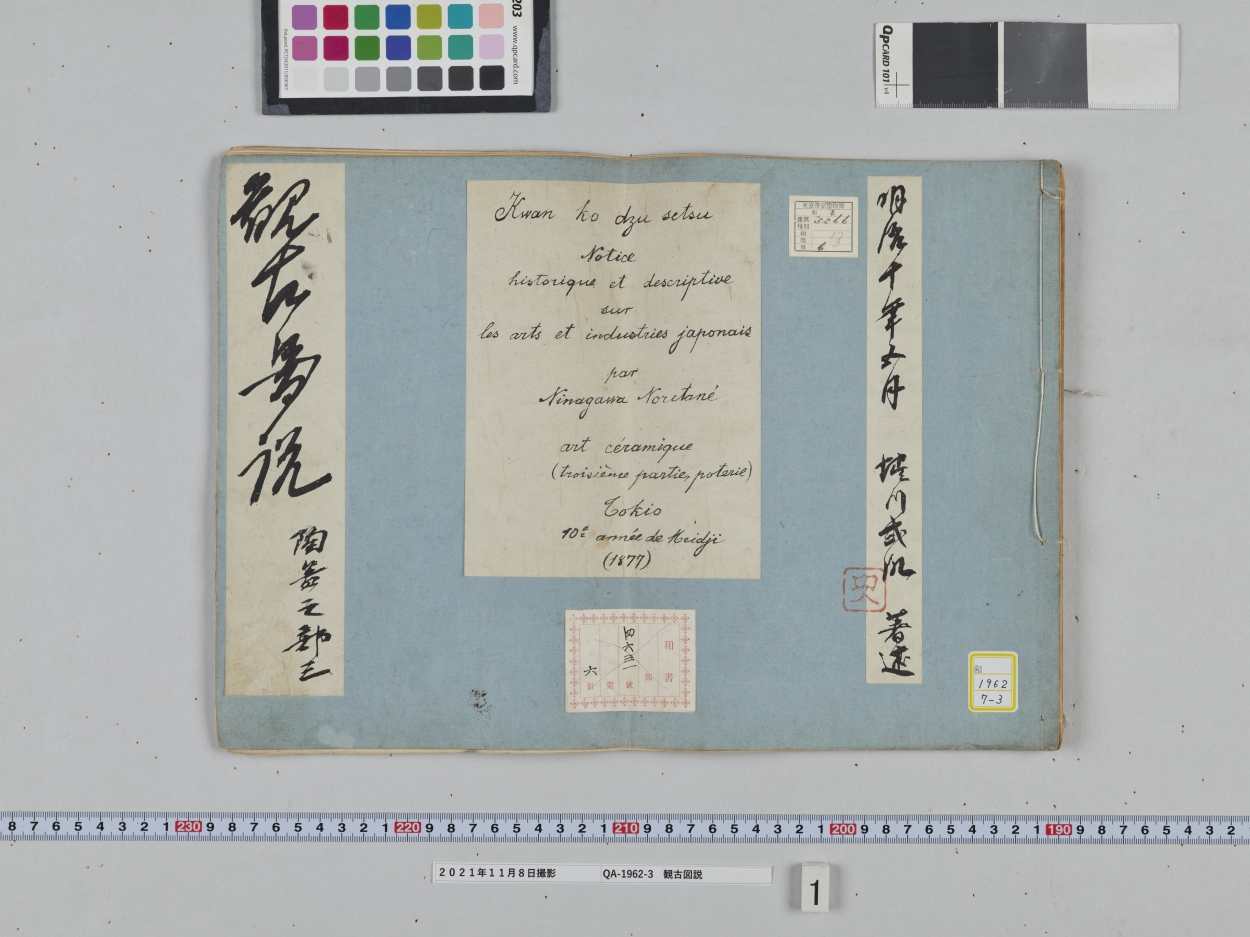 203
www.qpcard.com
QPCARD 101 v4
觀古圖説
陶器之部三
Kwan ko dzu setsu
Notice
historique et descriptive
sur
les arts et industries japonais
par
Ninagawa Noritané
art céramique
(troisième partie, poterie)
Tokio
10e année de Meidji
(1877)
明治十年五月 蜷川式胤 著述
和書
部
四六三一號
架
六册
和
1962
7-3
8 7 6 5 4 3 2 1 230 9 8 7 6 5 4 3 2 1 220 9 8 7 6 5 4 3 2 1 210 9 8 7 6 5 4 3 2 1 200 9 8 7 6 5 4 3 2 1 190 9 8 7 6 5 4 3 2
2021年11月8日撮影 QA-1962-3 観古図説
1